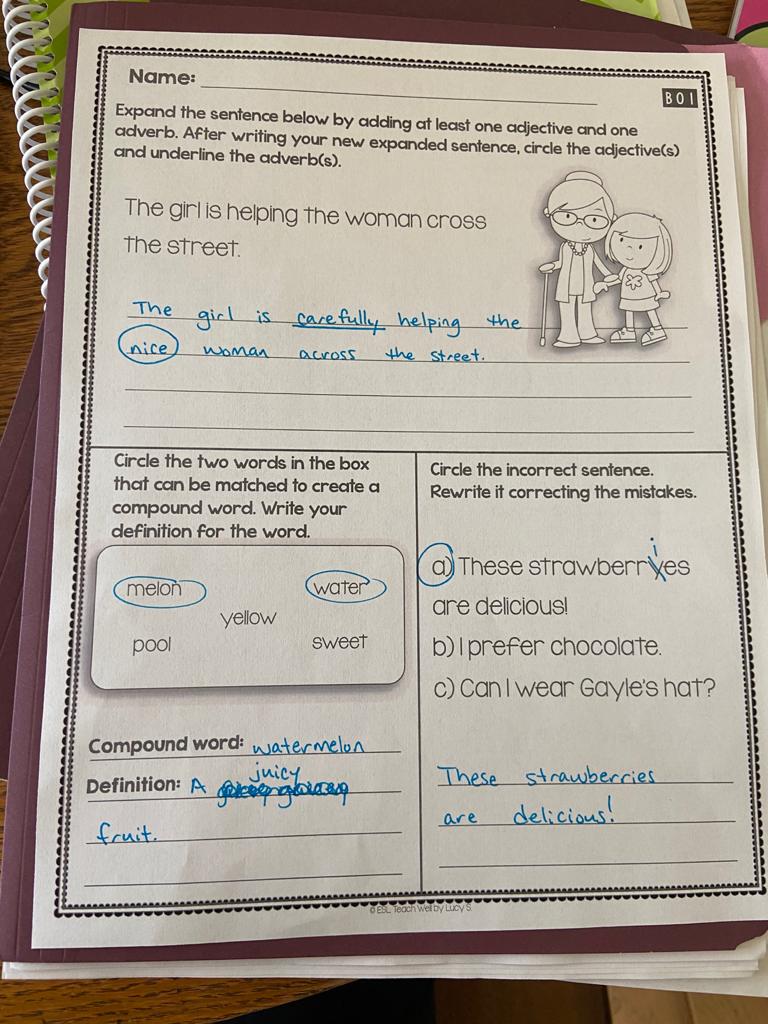 Name:
B01
Expand the sentence below by adding at least one adjective and one
adverb. After writing your new expanded sentence, circle the adjective(s)
and underline the adverb(s).
The girl is helping the woman cross
the street.
The girl is carefully helping the
nice woman across the street.
Circle the two words in the box
that can be matched to create a
compound word. Write your
definition for the word.
melon water
yellow
pool sweet
Compound word: watermelon
juicy
Definition: A
fruit.
Circle the incorrect sentence.
Rewrite it correcting the mistakes.
i
a) These strawberryes
are delicious!
b) I prefer chocolate.
c) Can I wear Gayle's hat?
These strawberries
are delicious!
© ESL Teach Well by Lucy S.